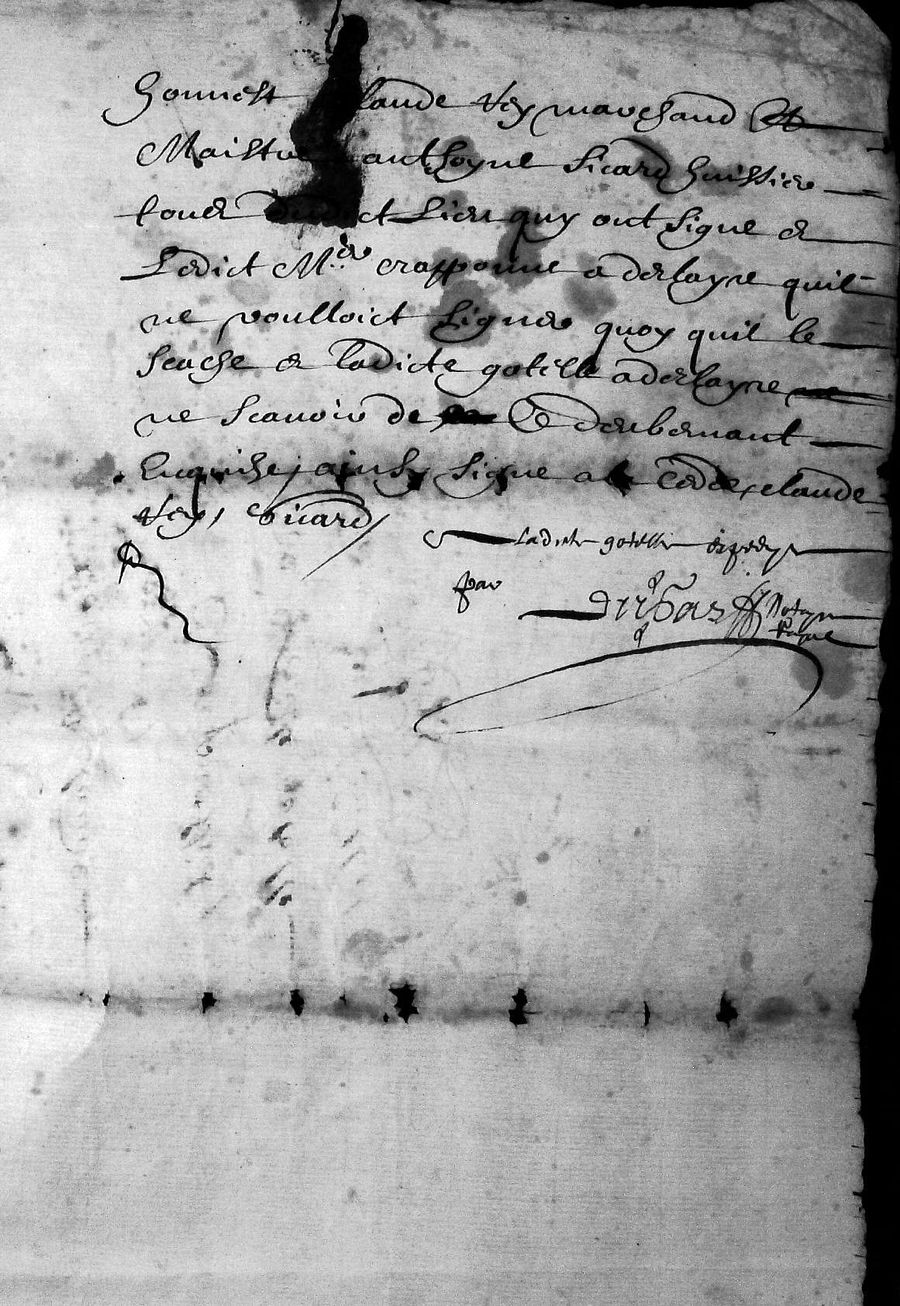 honnest laude vey marchand et
Maistre anthoyne Sicard huissier
tous dudict Lieu quy ont signe et
Ledict Mre crapponne a desclayre quil
ne voulloict signer quoy quil le
scache et ladicte gotelle a desclayre
ne scavoir de ce
Enquise, ainsy signe a la cede, claude
vey, Sicard
ladicte gotelle
par
Notayre